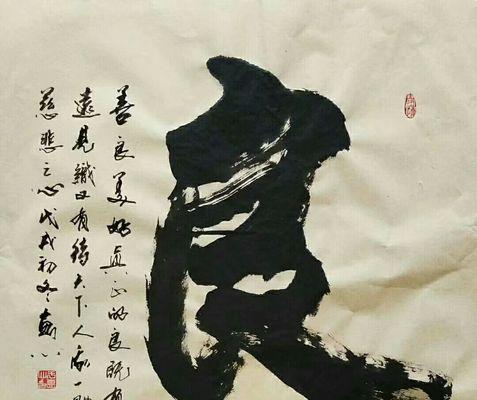 良
善良美好真正的良既有
遠見識又有待天下人一
慈悲之心戊戌初冬